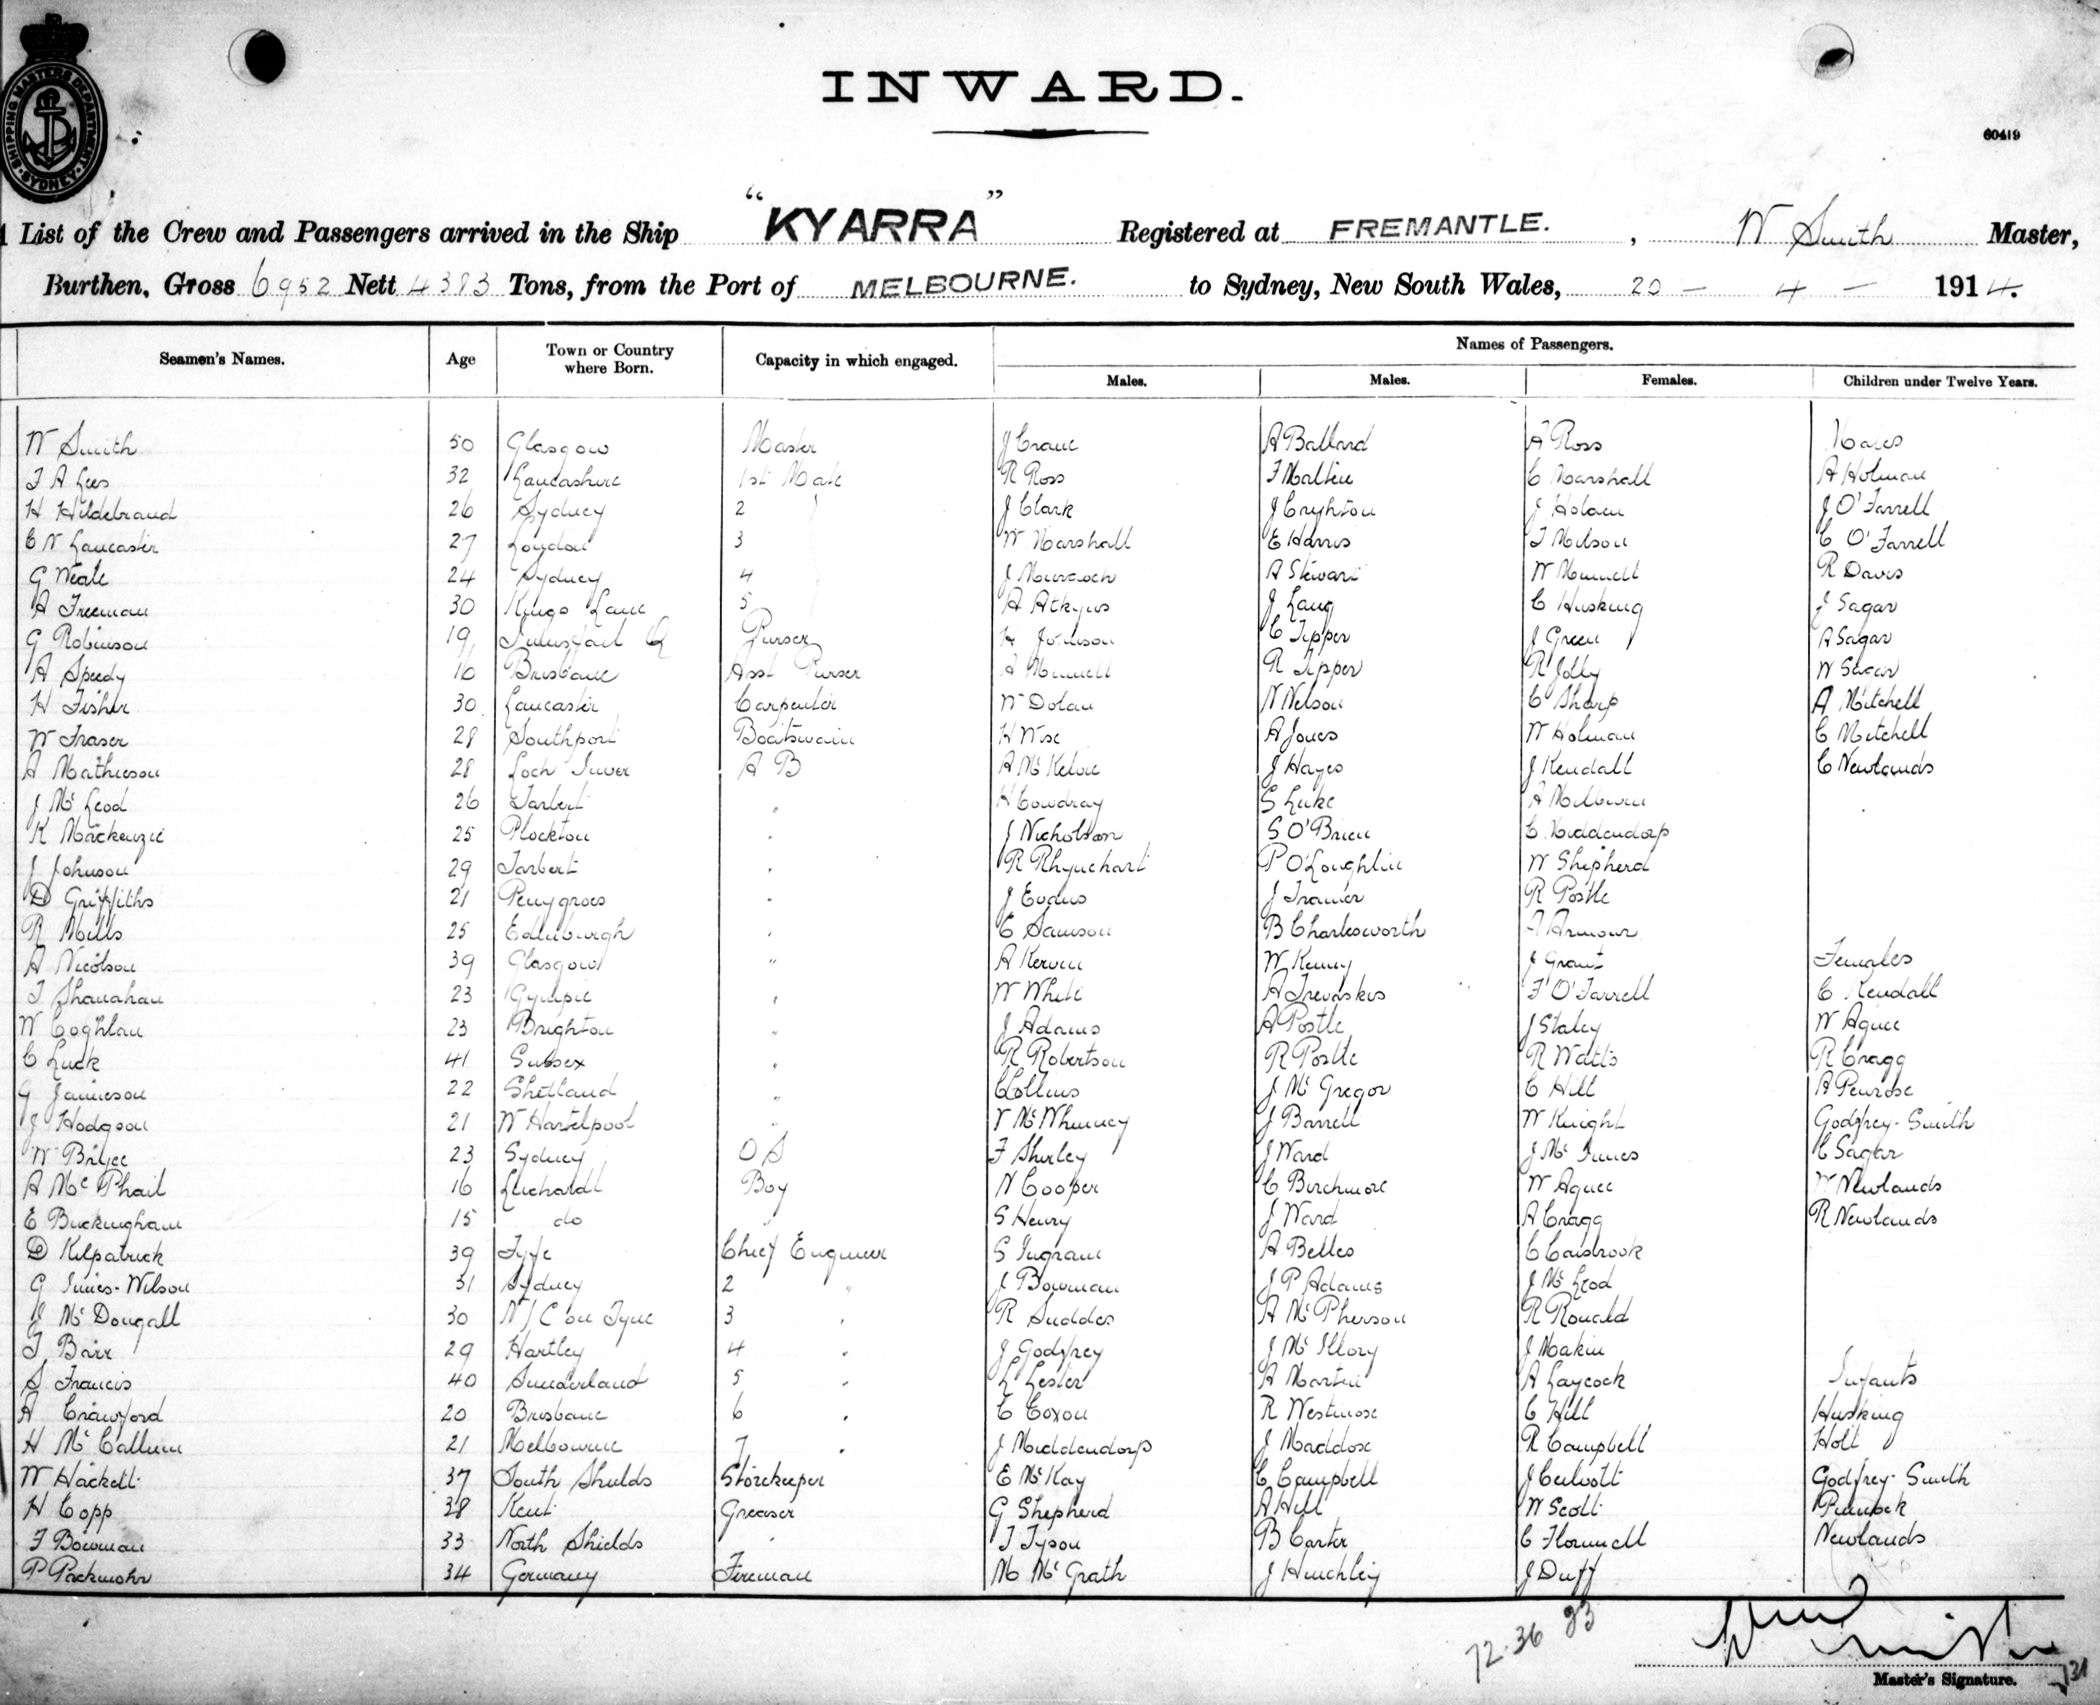 SHIPPING MASTERS DEPARTMENT
SYDNEY
INWARD.
60419
List of the Crew and Passengers arrived in the Ship "KYARRA" Registered at FREMANTLE. , W Smith Master,
Burthen, Gross 6952 Nett 4383 Tons, from the Port of MELBOURNE. to Sydney, New South Wales, 20 - 4 - 1914.
Names of Passengers.
Seamen's Names. Age Town or Country where Born. Capacity in which engaged. Males. Males. Females. Children under Twelve Years.
W Smith 50 Glasgow Master J Crane A Ballard A Ross Males
F A Lees 32 Lancashire 1st Mate R Ross F Mattin C Marshall A Holman
H Hildebrand 26 Sydney 2 J Clark J Holden J O'Farrell
C N Lancaster 27 London 3 W Marshall E Harris C O'Farrell
G Neale 24 Sydney 4 J Murdoch A Stewart R Davis
A Freeman 30 5 A Atkyns J Lang C Husking J Sagar
G Robinson 19 Innisfail Q Purser H Johnson C Tipper J Green A Sagar
A Speedy 16 Brisbane Asst Purser R Tipper R Jolly W Sagar
H Fisher 30 Lancaster Carpenter W Dolan N Nelson C Sharp A Mitchell
W Fraser 28 Southport Boatswain H Wise A Jones W Holman C Mitchell
A Mathieson 28 Loch Inver A B A McKelvie J Hayes J Kendall C Newlands
J McLeod 26 Tarbert " H Cowdray S Luke A Milburn
K Mackenzie 25 Plockton " J Nicholson S O'Brien C Middendorp
J Johnson 29 Tarbert " R Rhynehart P O'Loughlin W Shipherd
D Griffiths 21 Penygroes " J Evans J Tranier R Postle
R Mills 25 Edinburgh " C Samson B Charlesworth A Armour
A Nicolson 39 Glasgow " A Kerven W Kenny J Grant Females
T Shanahan 23 Gympie " W White A Trevaskis F O'Farrell C Kendall
W Coghlan 23 Brighton " J Adams A Postle J Staley W Agnee
C Luck 41 Sussex " R Robertson R Postle R Watts R Cragg
G Jamieson 22 Shetland " C Collins J McGregor C Hill A Penrose
J Hodgson 21 W Hartelpool " V McWhinney J Barrell W Knight Godfrey-Smith
W Bryce 23 Sydney O S F Shirley J Ward J McInnes C Sagar
A McPhail 16 Liechardt Boy N Cooper C Birchmore W Agnee W Newlands
E Buckingham 15 do " S Henry J Ward A Cragg R Newlands
D Kilpatrick 39 Fyfe Chief Engineer S Ingram A Belles C Caisbrook
G Innes-Wilson 31 Sydney 2 " J Bowman J P Adams J McLeod
J McDougall 30 N/C on Tyne 3 " R Suddes A McPherson R Ronald
T Barr 29 Hartley 4 " J Godfrey J McIlory J Makin
S Francis 40 Sunderland 5 " L Lester A Martin A Laycock Infants
A Crawford 20 Brisbane 6 " C Coxon R Westmore C Hill Husking
H McCallum 21 Melbourne 7 " J Middendorp J Maddose R Campbell Holt
W Hackett 37 South Shields Storekeeper E McKay C Campbell Godfrey-Smith
H Copp 38 Kent Greaser G Shepherd A Hill W Scott
F Bowman 33 North Shields " T Tyson B Carter Newlands
P Packmohr 34 Germany Fireman M McGrath J Hinchley J Duff
72.36 23
Master's Signature.
131